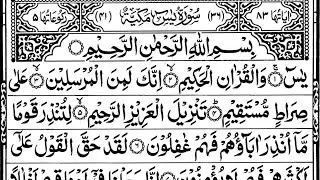 اٰیاتہا ۸۳ (۳۶) سُوْرَةُ یٰسٓ مَکِّیَّةٌ (۴۱) رکوعاتہا ۵
بِسْمِ اللّٰهِ الرَّحْمٰنِ الرَّحِیْمِ
یٰسٓ وَالْقُرْاٰنِ الْحَکِیْمِ اِنَّكَ لَمِنَ الْمُرْسَلِیْنَ عَلٰی
صِرَاطٍ مُّسْتَقِیْمٍ تَنْزِیْلَ الْعَزِیْزِ الرَّحِیْمِ لِتُنْذِرَ قَوْمًا
مَّاۤ اُنْذِرَ اٰبَآؤُهُمْ فَهُمْ غٰفِلُوْنَ لَقَدْ حَقَّ الْقَوْلُ عَلٰۤی